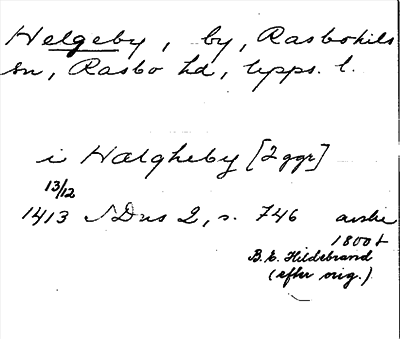 Helgeby, by, Rasbokils
sn, Rasbo hd, Upps. l.
i Halgheby [2 ggr]
13/12
1413 SDns 2, s. 746 avskr
1800 t
B. E. Hildebrand
(efter orig.)